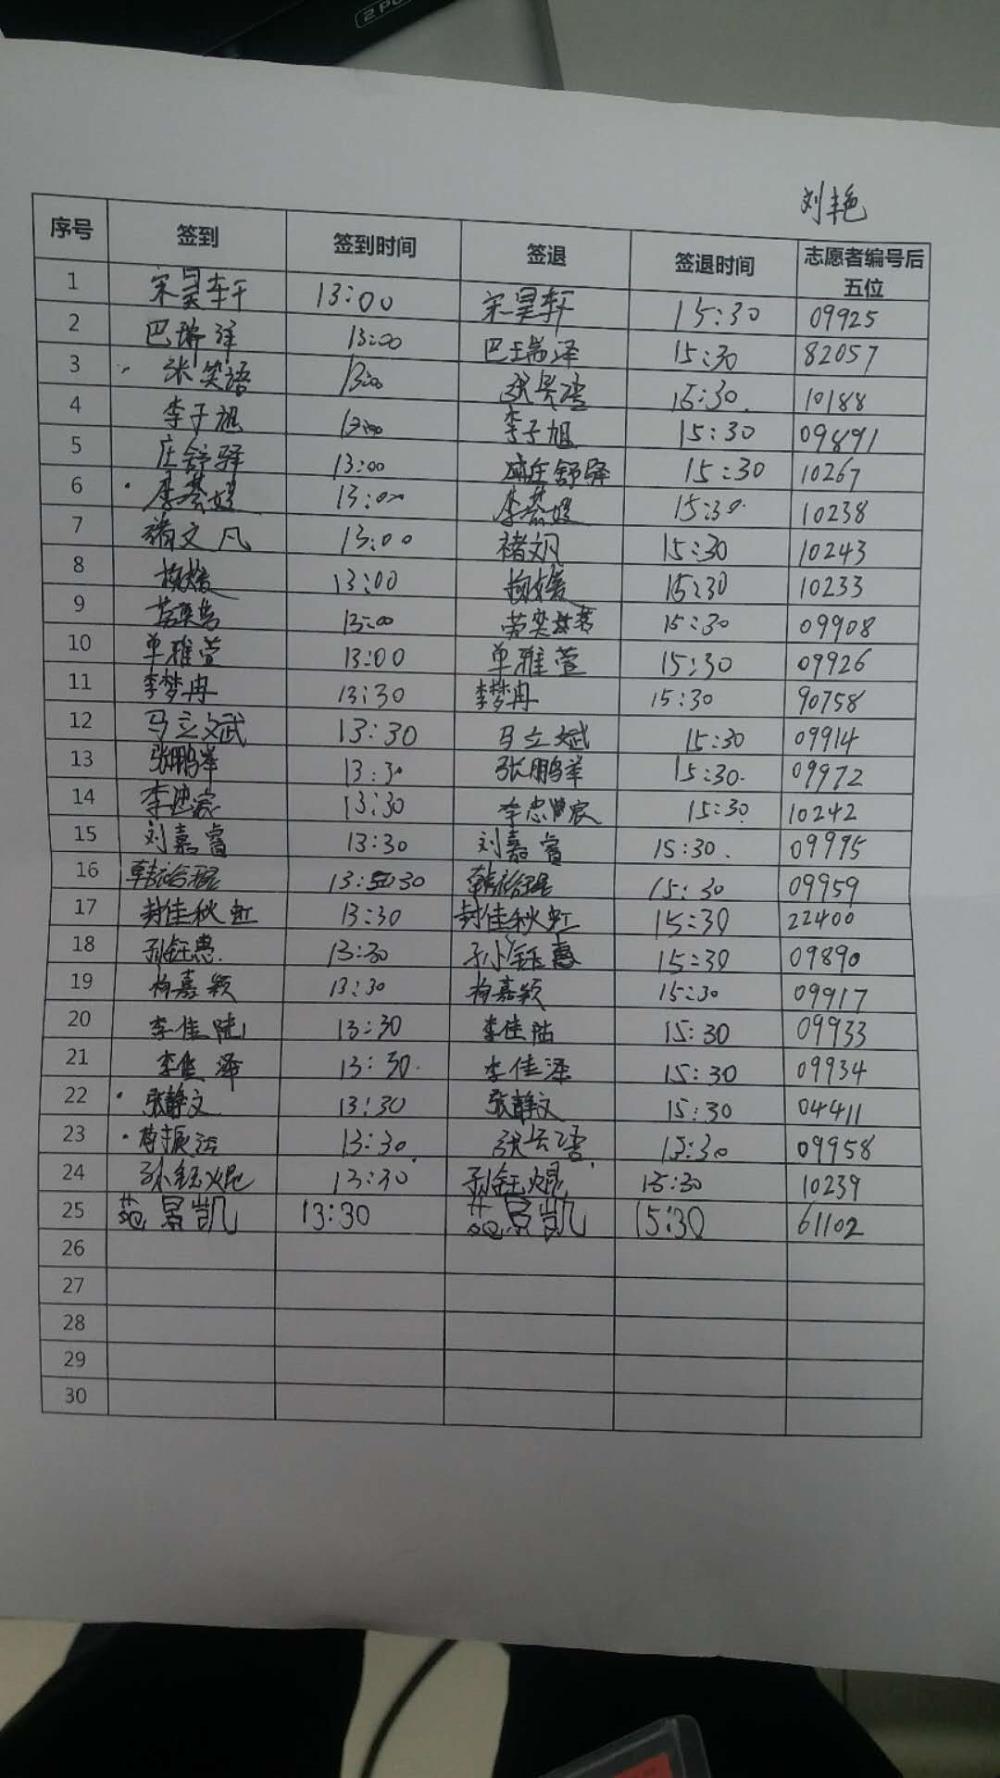 刘艳
序号 签到 签到时间 签退 签退时间 志愿者编号后五位
1 宋昊轩 13:00 宋昊轩 15:30 09925
2 巴瑞泽 13:00 巴瑞泽 15:30 82057
3 张笑语 13:00 15:30 10188
4 李子旭 13:00 李子旭 15:30 09891
5 庄舒驿 13:00 庄舒驿 15:30 10267
6 13:00 15:30 10238
7 褚文凡 13:00 褚文凡 15:30 10243
8 13:00 15:30 10233
9 13:00 15:30 09908
10 单雅萱 13:00 单雅萱 15:30 09926
11 李梦冉 13:30 李梦冉 15:30 90758
12 马立斌 13:30 马立斌 15:30 09914
13 张鹏举 13:30 张鹏举 15:30 09972
14 13:30 15:30 10242
15 刘嘉睿 13:30 刘嘉睿 15:30 09995
16 13:30 15:30 09959
17 封佳秋虹 13:30 封佳秋虹 15:30 22400
18 孙钰惠 13:30 孙钰惠 15:30 09890
19 杨嘉颖 13:30 杨嘉颖 15:30 09917
20 13:30 15:30 09933
21 李佳泽 13:30 李佳泽 15:30 09934
22 张静文 13:30 张静文 15:30 04411
23 13:30 15:30 09958
24 孙钰焜 13:30 孙钰焜 15:30 10239
25 范景凯 13:30 范景凯 15:30 61102
26
27
28
29
30